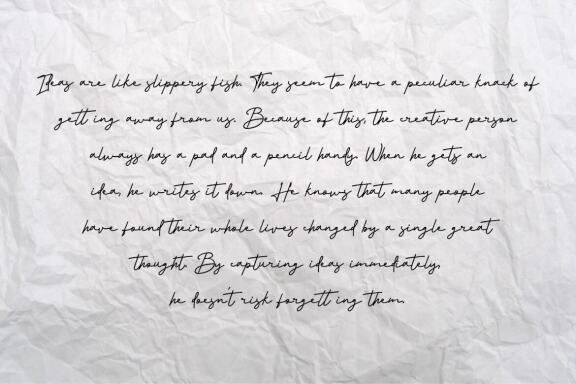 Ideas are like slippery fish. They seem to have a peculiar knack of
gett ing away from us. Because of this, the creative person
always has a pad and a pencil handy. When he gets an
idea, he writes it down. He knows that many people
have found their whole lives changed by a single great
thought. By capturing ideas immediately,
he doesn't risk forgett ing them.